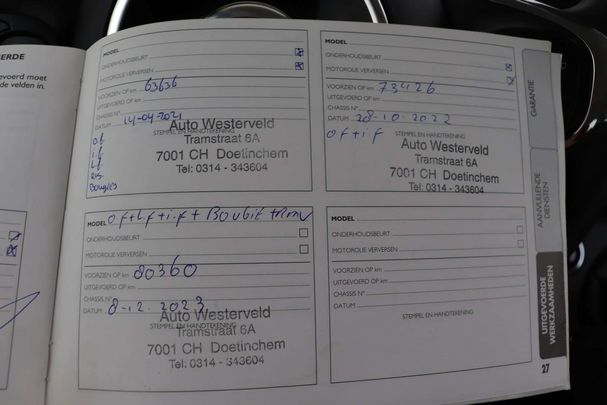 EERDE
gevoerd moet
de velden in.
MODEL
ONDERHOUDSBEURT
MOTOROLIE VERVERSEN
VOORZIEN OP km 63636
UITGEVOERD OP km
CHASSIS N°
DATUM 14-04-2021
STEMPEL EN HANDTEKENING
Auto Westerveld
Tramstraat 6A
7001 CH Doetinchem
Tel: 0314 - 343604
of
if
Lf
Bougies
MODEL
ONDERHOUDSBEURT
MOTOROLIE VERVERSEN
VOORZIEN OP km 73426
UITGEVOERD OP km
CHASSIS N°
DATUM 28-10-2022
of+if
STEMPEL EN HANDTEKENING
Auto Westerveld
Tramstraat 6A
7001 CH Doetinchem
Tel: 0314 - 343604
MODEL of+Lf+i.f+
ONDERHOUDSBEURT
MOTOROLIE VERVERSEN
VOORZIEN OP km 80360
UITGEVOERD OP km
CHASSIS N°
DATUM 8-12-2023
STEMPEL EN HANDTEKENING
Auto Westerveld
Tramstraat 6A
7001 CH Doetinchem
Tel: 0314 - 343604
MODEL
ONDERHOUDSBEURT
MOTOROLIE VERVERSEN
VOORZIEN OP km
UITGEVOERD OP km
CHASSIS N°
DATUM
STEMPEL EN HANDTEKENING
GARANTIE
AANVULLENDE
DIENSTEN
UITGEVOERDE
WERKZAAMHEDEN
27